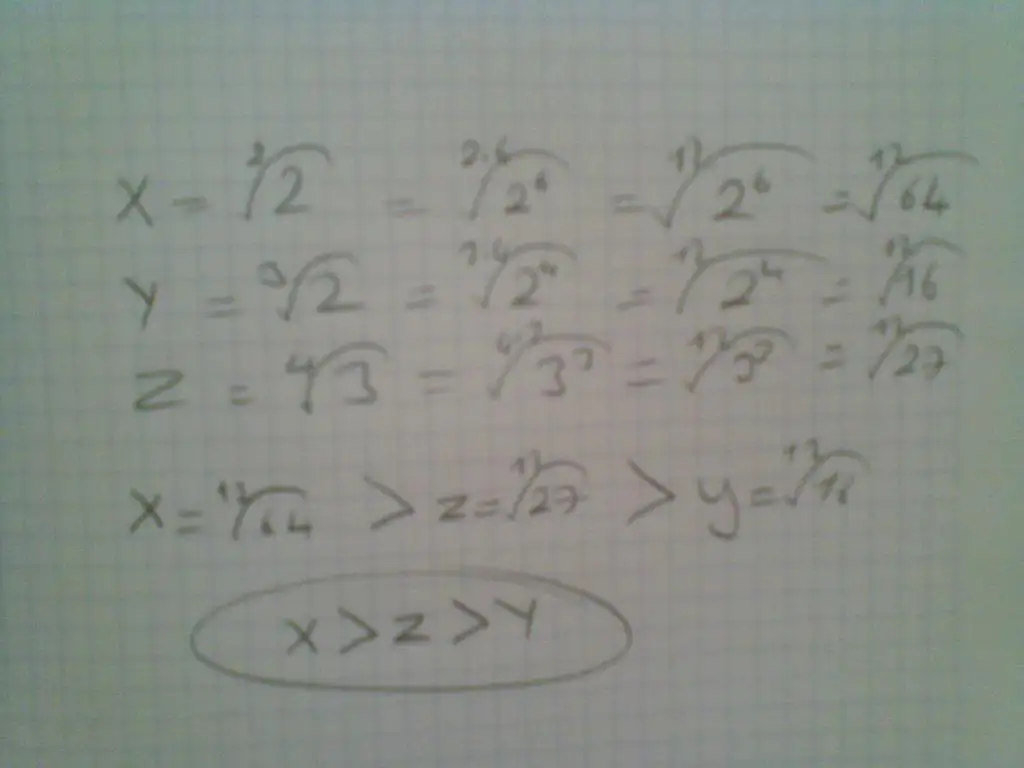 X = ²√2 = ²·⁶√2⁶ = ¹²√2⁶ = ¹²√64
Y = ³√2 = ³·⁴√2⁴ = ¹²√2⁴ = ¹²√16
Z = ⁴√3 = ⁴·³√3³ = ¹²√3³ = ¹²√27
X = ¹²√64 > z = ¹²√27 > y = ¹²√16
X > Z > Y